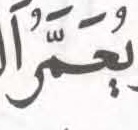 يُعَمَّرُ ا